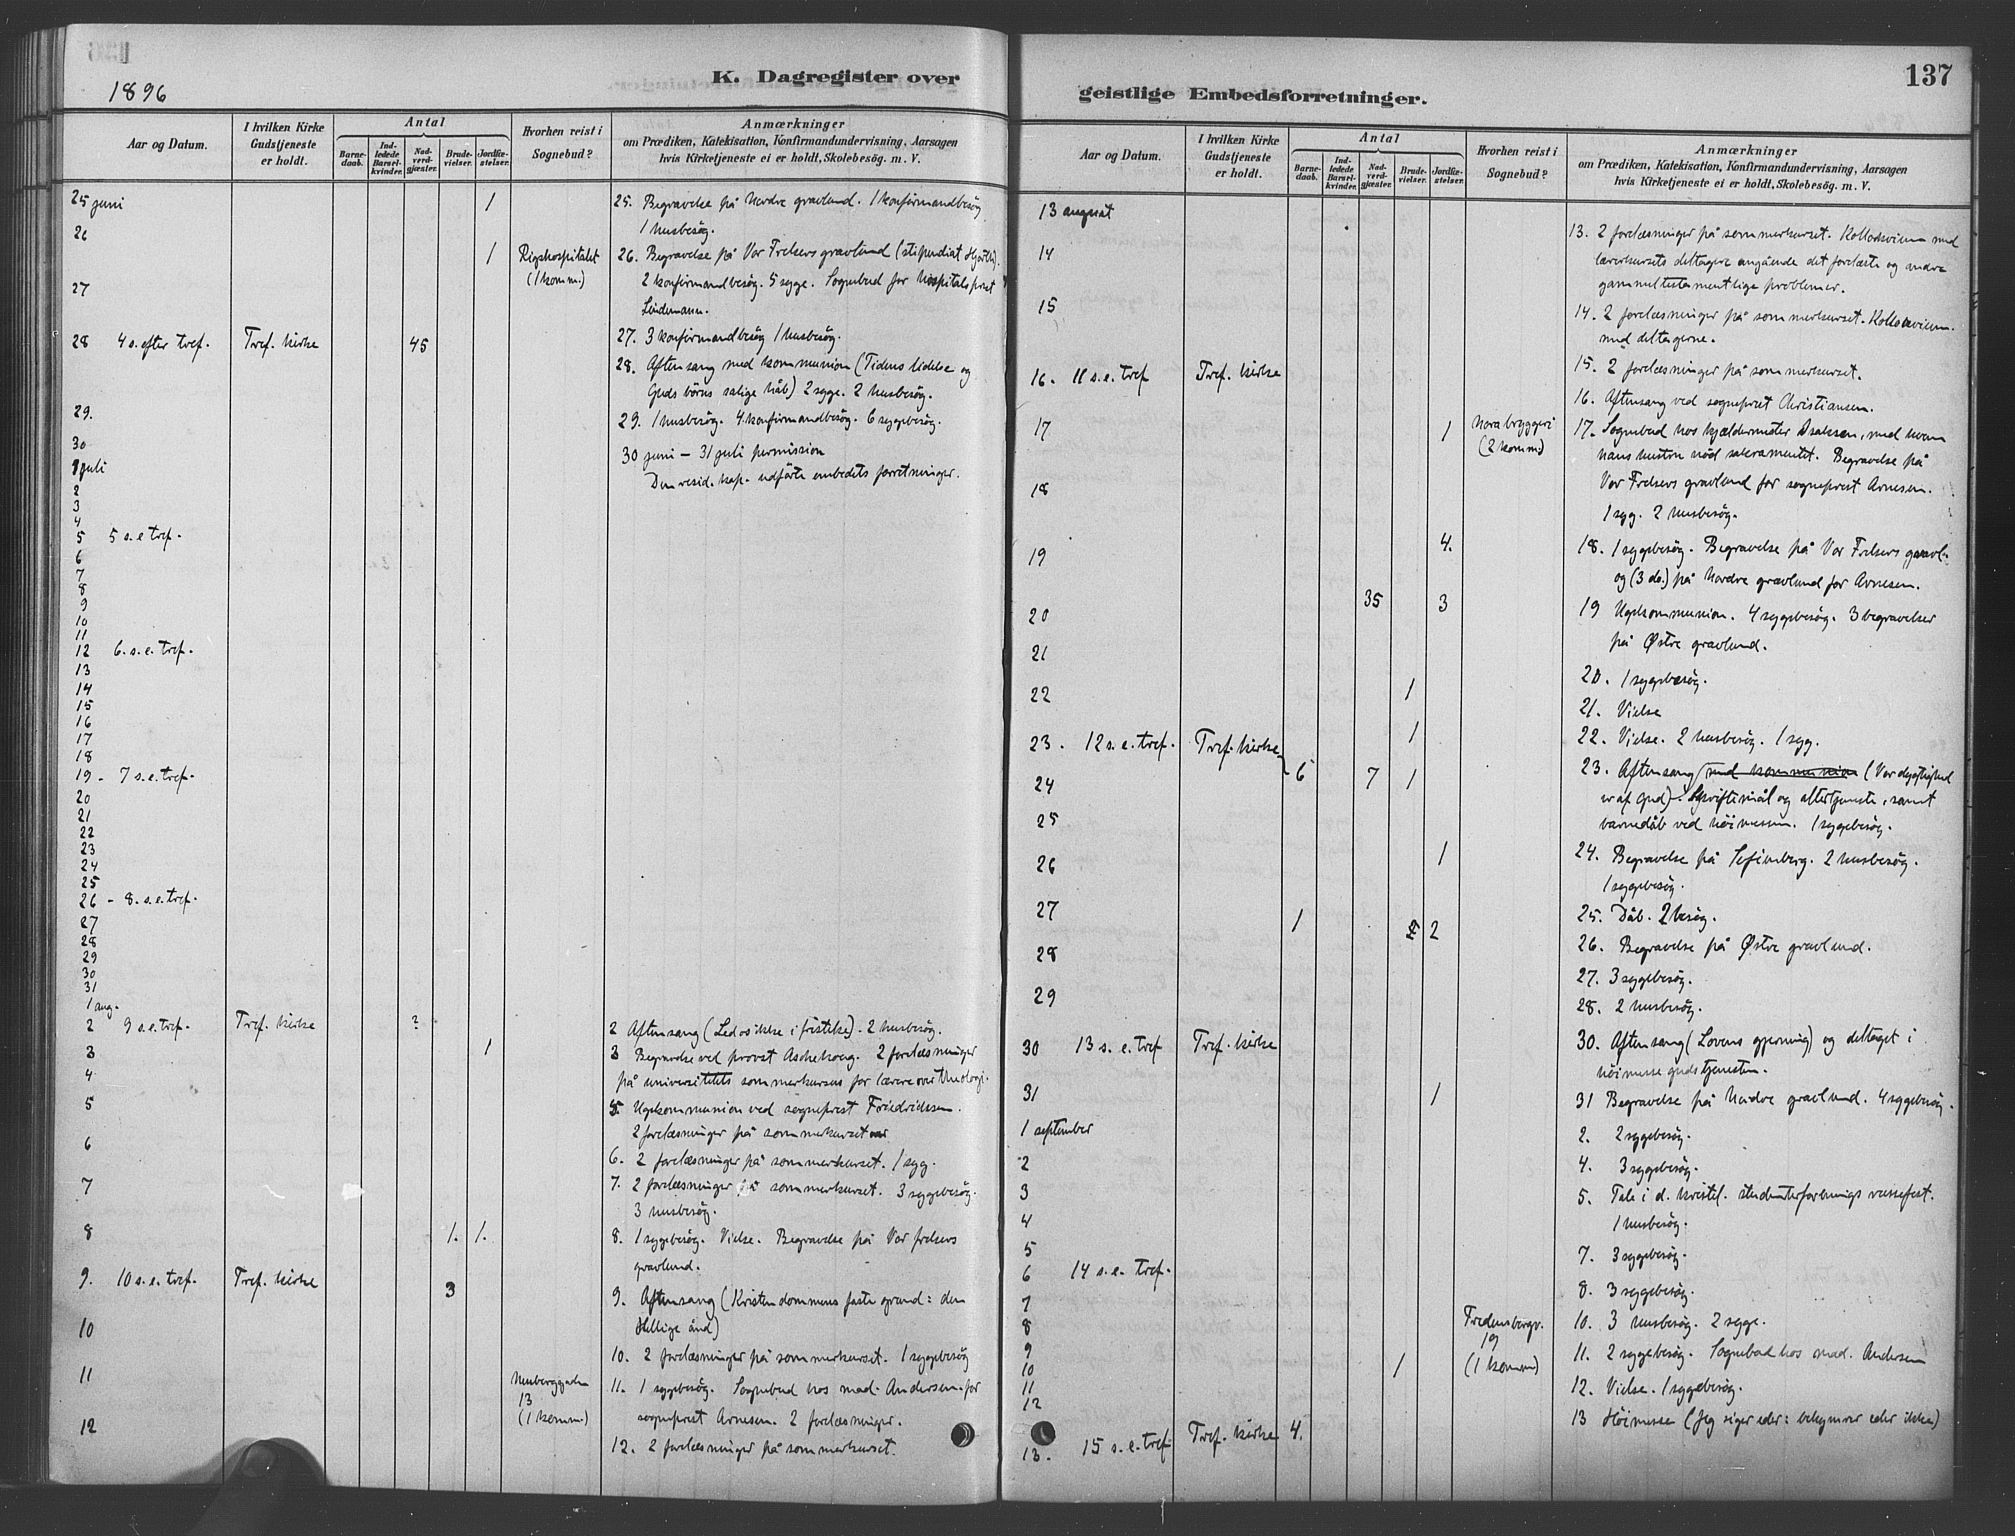 1896
K. Dagregister over
Aar og Datum.
I hvilken Kirke Gudstjeneste er holdt.
Antal
Barne-daab.
Ind-ledede Barsel-kvinder.
Nad-verd-gjæster.
Brude-vielser.
Jordfæ-stelser.
Hvorhen reist i Sognebud?
Anmærkninger
om Prædiken, Katekisation, Konfirmandundervisning, Aarsagen
hvis Kirketjeneste ei er holdt, Skolebesøg. m. V.
25 juni 1 25. Begravelse på Nordre gravlund. 1 konfirmandbesøg
1 husbesøg.
26 1 Rigshospitalet (1 komm.) 26. Begravelse på Vor Frelsers gravlund (stipendiat
2 konfirmandbesøg. 5 syge. Sognebud for hospitalsprest
Lindemann.
27 27. 3 konfirmandbesøg 1 husbesøg.
28 4 s. efter tref. Tref. kirke 45 28. Aftensang med kommunion (Tidens lidelse og
Guds børns salige håb) 2 syge. 2 husbesøg.
29. 29. 1 husbesøg. 4 konfirmandbesøg. 6 sygebesøg.
30 30 juni – 31 juli permission
1 juli Den resid. kap. udførte embedets forretninger.
2
3
4
5 5 s. e tref.
6
7
8
9
10
11
12 6. s. e. tref.
13
14
15
16
17
18
19 - 7 s. e. tref.
20
21
22
23
24
25
26 - 8. s. e. tref.
27
28
29
30
31
1 aug.
2 9 s. e. tref. Tref. kirke ? 2 Aftensang (Led os ikke i fristelse). 2 husbesøg.
3 1 3 Begravelse ved provst Aschehoug. 2 forelæsninger
4 på universitetets sommerkursus for lærere over theologi.
5 5. Ugekommunion ved sogneprest Friedrichsen.
2 forelæsninger på sommerkurset
6 6. 2 forelæsninger på sommerkurset. 1 syg.
7 7. 2 forelæsninger på sommerkurset. 3 sygebesøg.
3 husbesøg.
8 1. 1. 8. 1 sygebesøg. Vielse. Begravelse på Vor frelsers
gravlund.
9. 10 s. e. tref. Tref. kirke 3 9. Aftensang (Kristendommens faste grund: den
Hellige ånd)
10 10. 2 forelæsninger på sommerkurset. 1 sygebesøg
11 13 (1 komm.) 11. 1 sygebesøg. Sognebud hos mad. Andersen for
sogneprest Arnesen. 2 forelæsninger.
12 12. 2 forelæsninger på sommerkurset.
137
geistlige Embedsforretninger.
Aar og Datum.
I hvilken Kirke Gudstjeneste er holdt.
Antal
Barne-daab.
Ind-ledede Barsel-kvinder.
Nad-verd-gjæster.
Brude-vielser.
Jordfæ-stelser.
Hvorhen reist i Sognebud?
Anmærkninger
om Prædiken, Katekisation, Konfirmandundervisning, Aarsagen
hvis Kirketjeneste ei er holdt, Skolebesøg. m. V.
13 august 13. 2 forelæsninger på sommerkurset. Kollokvium med
lærerkursets deltagere angående det forelæste og andre
gammeltestamentlige problemer.
14 14. 2 forelæsninger på sommerkurset. Kollokvium
med deltagerne.
15 15. 2 forelæsninger på sommerkurset.
16. 11 s. e. tref Tref. kirke 16. Aftensang ved sogneprest Christiansen.
17 1 Nora bryggeri (2 komm) 17. Sognebud hos kjældermester Isaksen, med hvem
hans hustru nød sakramentet. Begravelse på
Vor Frelsers gravlund for sogneprest Arnesen.
1 syg. 2 husbesøg.
18 4. 18. 1 sygebesøg. Begravelse på Vor Frelsers gravl.
og (3 do.) på Nordre gravlund for Arnesen.
19 35 3 19 Ugekommunion. 4 sygebesøg. 3 begravelser
på Østre gravlund.
20 20. 1 sygebesøg.
21 21. Vielse
22 1 22. Vielse. 2 husbesøg. 1 syg.
23. 12 s. e. tref. Tref. kirke 6 7 1 1 23. Aftensang med kommunion (Vor dygtighed
er af Gud). Skriftemål og altertjeneste, samt
barnedåb ved høimessen. 1 sygebesøg.
24 1 24. Begravelse på 2 husbesøg.
1 sygebesøg.
25 1 25. Dåb. 2 besøg.
26 2 26. Begravelse på Østre gravlund.
27 27. 3 sygebesøg.
28 28. 2 husbesøg.
29
30 13 s. e. tref Tref. kirke 30. Aftensang (Lovens gjerning) og deltaget i
høimessegudstjenesten.
31 1 31 Begravelse på Nordre gravlund. 4 sygebesøg.
1 september
2 2. 2 sygebesøg.
3
4 4. 3 sygebesøg.
5 5. Tale i d. kristel. studenterforenings russefest.
1 husbesøg.
6 14 s. e. tref.
7 7. 3 sygebesøg.
8 8. 3 sygebesøg.
9
10 10. 3 husbesøg. 2 syge.
11 Fredensborgv. 19 (1 komm) 11. 2 sygebesøg. Sognebud hos mad. Andersen
12 1 12. Vielse. 1 sygebesøg.
13. 15 s. e. tref. Tref. kirke 4. 13 Høimesse (Jeg siger eder: bekymrer eder ikke)